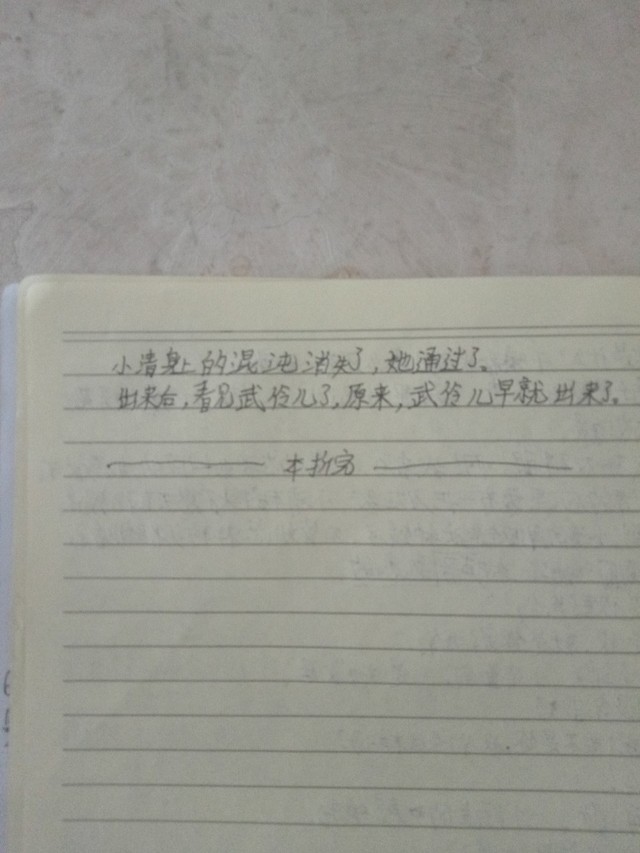 小清身上的混沌消失了，她通过了。
出来后，看见武伶儿了，原来，武伶儿早就出来了。
本折完